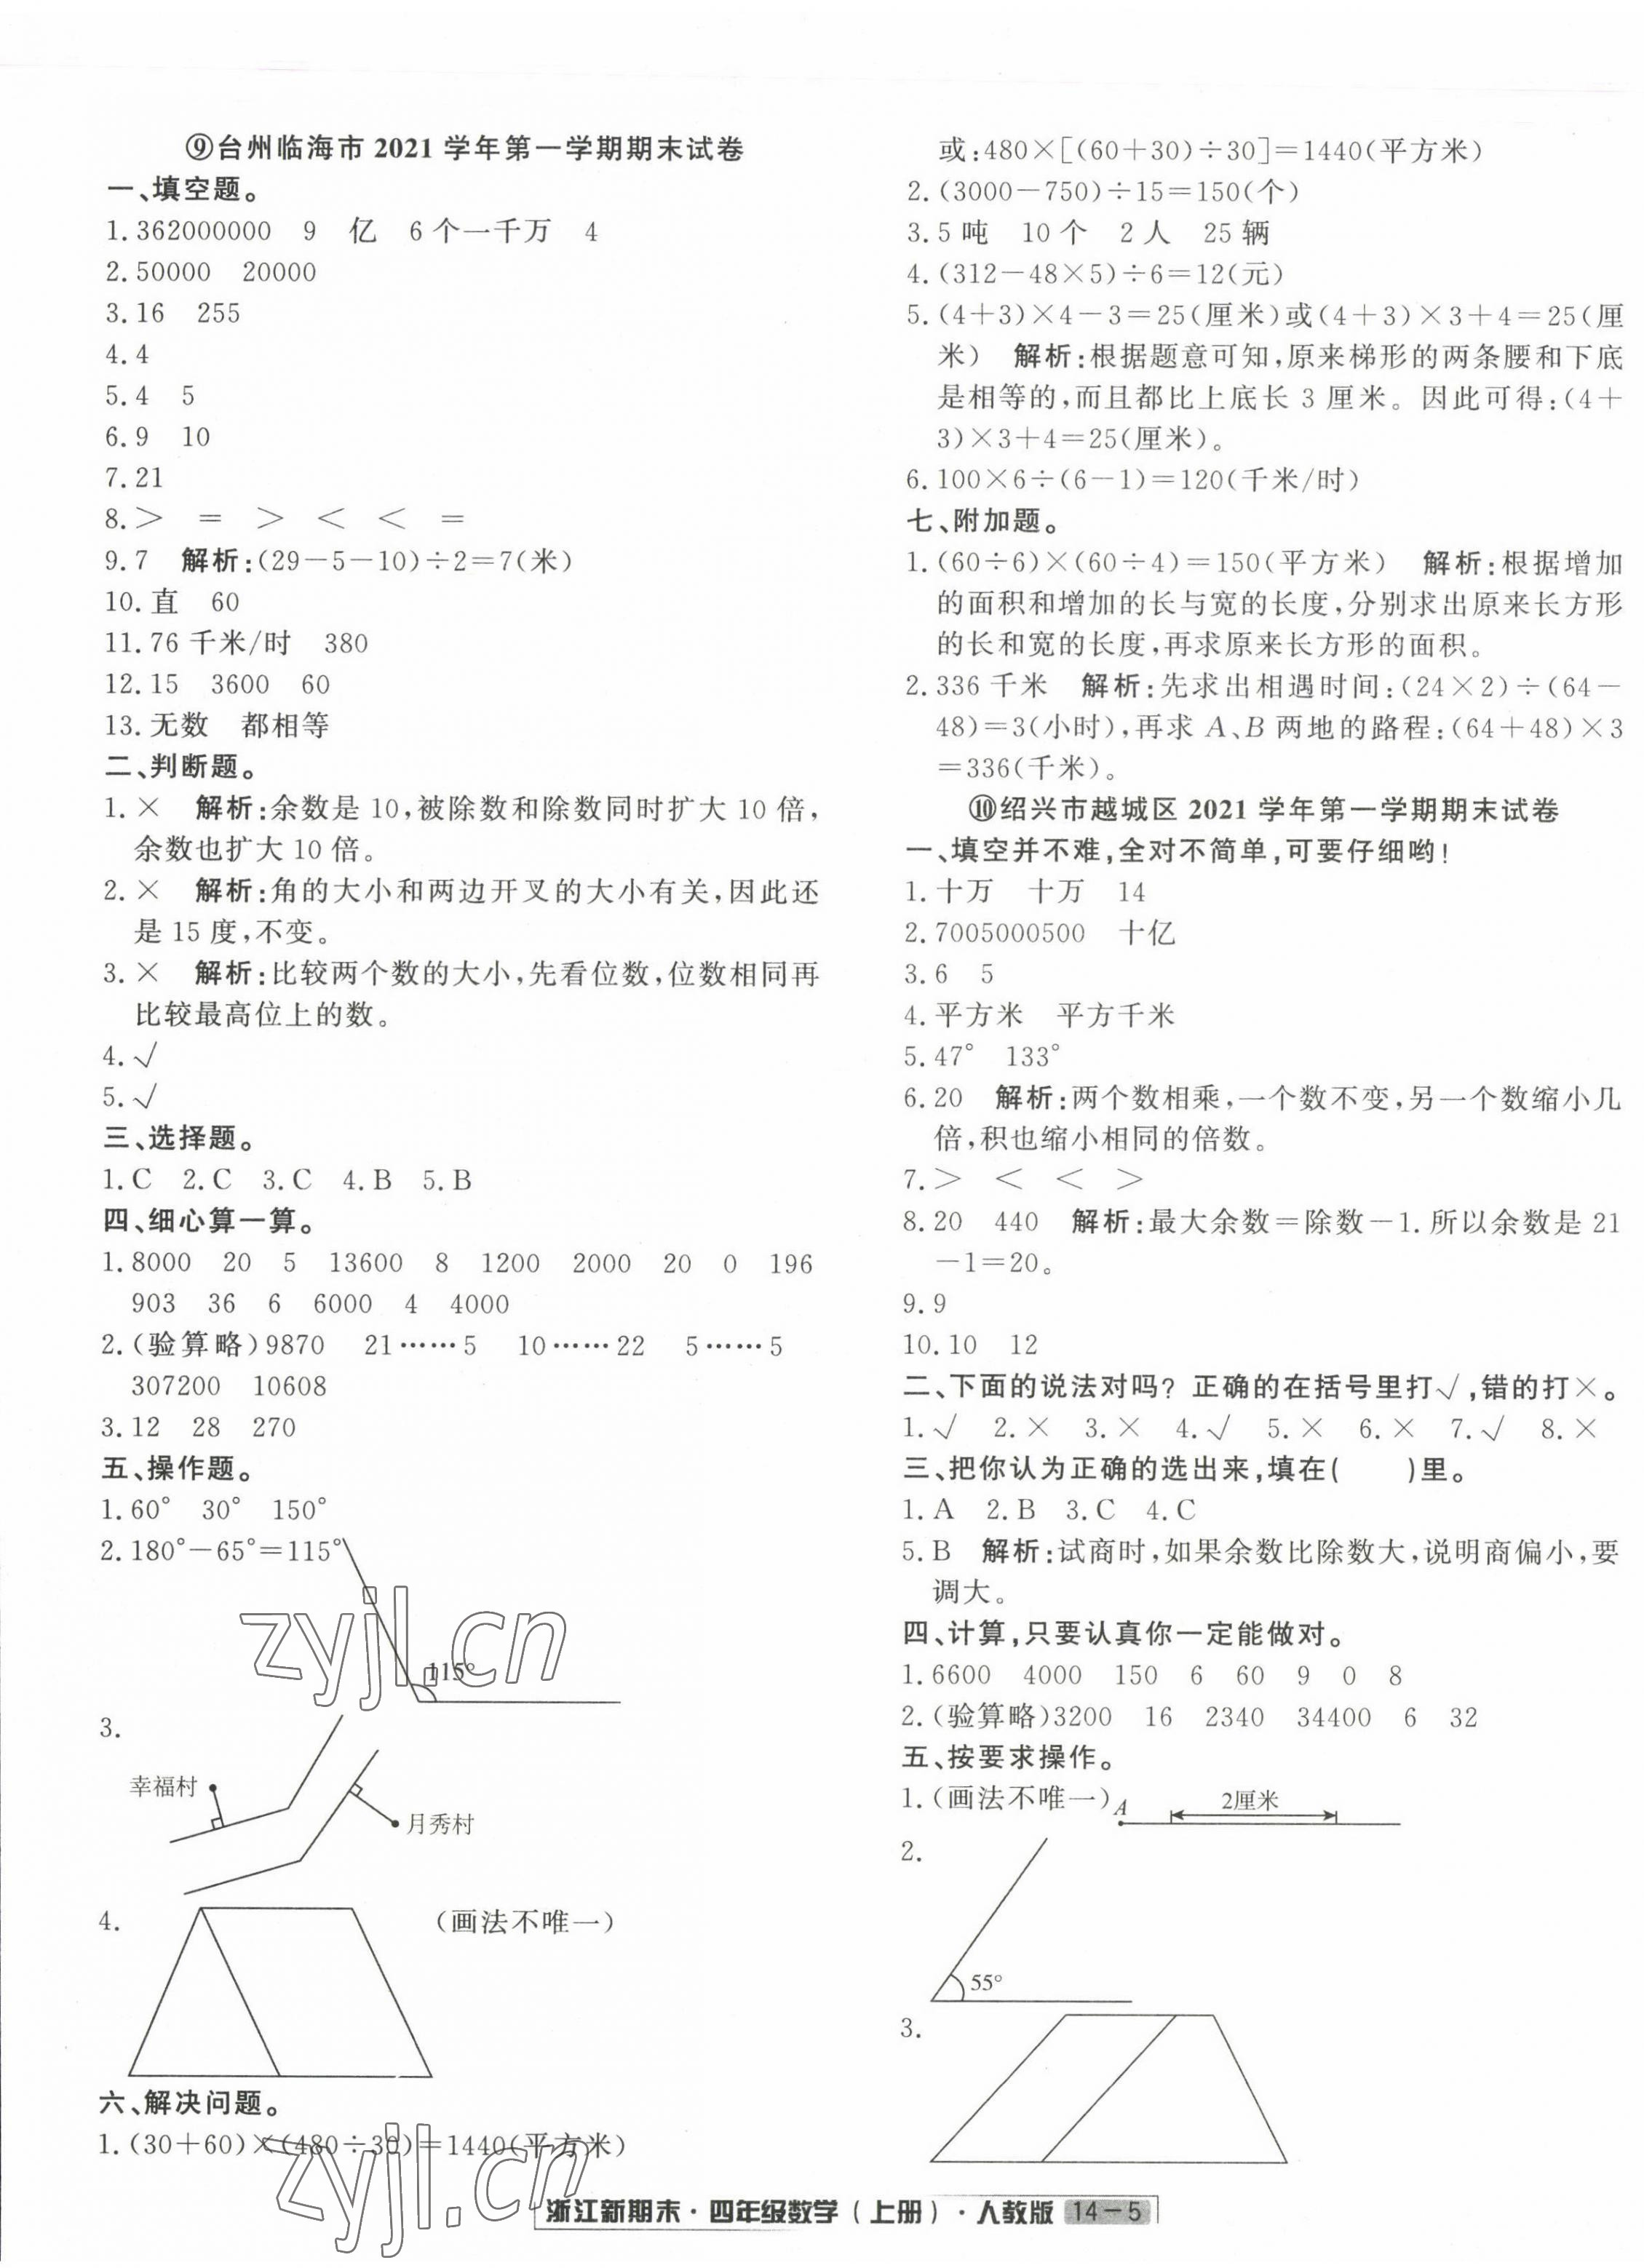 ⑨台州临海市 2021 学年第一学期期末试卷
一、填空题。
1.362000000　9　亿　6 个一千万　4
2.50000　20000
3.16　255
4.4
5.4　5
6.9　10
7.21
8.＞　＝　＞　＜　＜　＝
9.7　解析:(29－5－10)÷2＝7(米)
10.直　60
11.76 千米/时　380
12.15　3600　60
13.无数　都相等
二、判断题。
1.×　解析:余数是 10,被除数和除数同时扩大 10 倍,
余数也扩大 10 倍。
2.×　解析:角的大小和两边开叉的大小有关,因此还
是 15 度,不变。
3.×　解析:比较两个数的大小,先看位数,位数相同再
比较最高位上的数。
4.√
5.√
三、选择题。
1.C　2.C　3.C　4.B　5.B
四、细心算一算。
1.8000　20　5　13600　8　1200　2000　20　0　196
903　36　6　6000　4　4000
2.(验算略)9870　21……5　10……22　5……5
307200　10608
3.12　28　270
五、操作题。
1.60°　30°　150°
2.180°－65°＝115°
115°
zyjl.cn
3.
幸福村
月秀村
4.
(画法不唯一)
六、解决问题。
1.(30＋60)×(480÷30)＝1440(平方米)
zyjl.cn
或:480×[(60＋30)÷30]＝1440(平方米)
2.(3000－750)÷15＝150(个)
3.5 吨　10 个　2 人　25 辆
4.(312－48×5)÷6＝12(元)
5.(4＋3)×4－3＝25(厘米)或(4＋3)×3＋4＝25(厘
米)　解析:根据题意可知,原来梯形的两条腰和下底
是相等的,而且都比上底长 3 厘米。因此可得:(4＋
3)×3＋4＝25(厘米)。
6.100×6÷(6－1)＝120(千米/时)
七、附加题。
1.(60÷6)×(60÷4)＝150(平方米)　解析:根据增加
的面积和增加的长与宽的长度,分别求出原来长方形
的长和宽的长度,再求原来长方形的面积。
2.336 千米　解析:先求出相遇时间:(24×2)÷(64－
48)＝3(小时),再求 A、B 两地的路程:(64＋48)×3
＝336(千米)。
⑩绍兴市越城区 2021 学年第一学期期末试卷
一、填空并不难,全对不简单,可要仔细哟!
1.十万　十万　14
2.7005000500　十亿
3.6　5
4.平方米　平方千米
5.47°　133°
6.20　解析:两个数相乘,一个数不变,另一个数缩小几
倍,积也缩小相同的倍数。
7.＞　＜　＜　＞
8.20　440　解析:最大余数＝除数－1.所以余数是 21
－1＝20。
9.9
10.10　12
二、下面的说法对吗? 正确的在括号里打√,错的打×。
1.√　2.×　3.×　4.√　5.×　6.×　7.√　8.×
三、把你认为正确的选出来,填在(　　)里。
1.A　2.B　3.C　4.C
5.B　解析:试商时,如果余数比除数大,说明商偏小,要
调大。
四、计算,只要认真你一定能做对。
1.6600　4000　150　6　60　9　0　8
2.(验算略)3200　16　2340　34400　6　32
五、按要求操作。
1.(画法不唯一)
A
2厘米
2.
55°
3.
浙江新期末·四年级数学(上册)·人教版 14－5